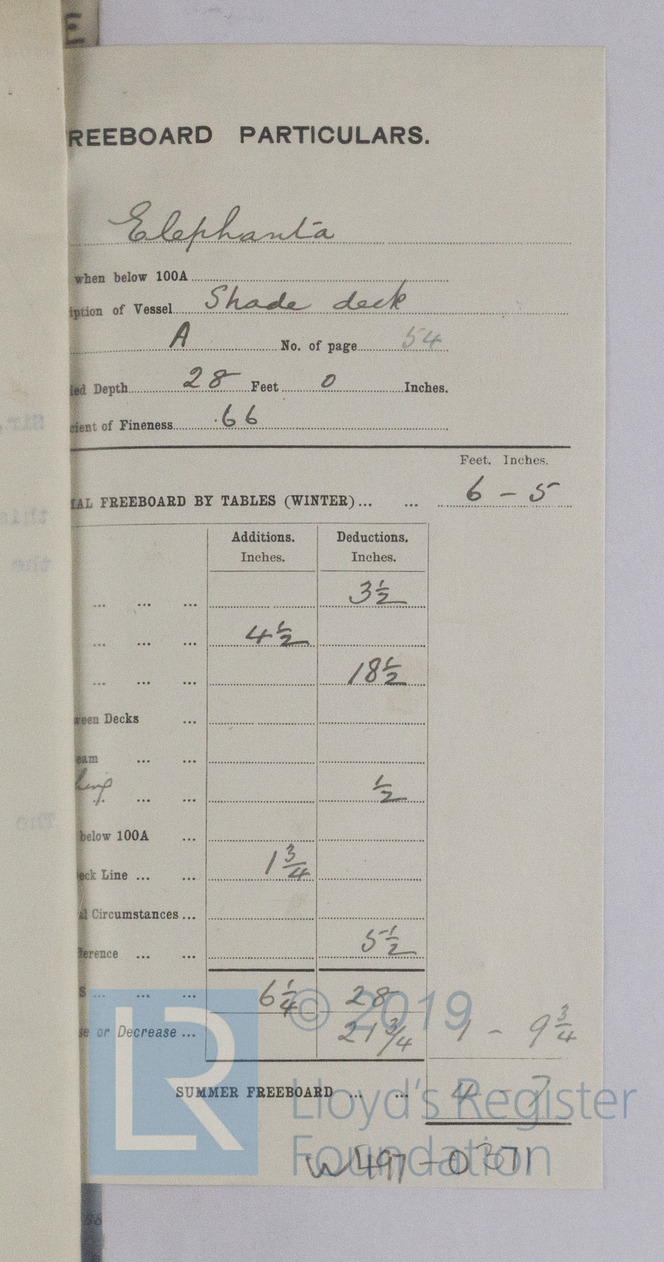 REEBOARD PARTICULARS.
Elephanta
when below 100A
iption of Vessel Shade deck
A No. of page 54
ied Depth 28 Feet 0 Inches.
cient of Fineness .66
Feet. Inches.
IAL FREEBOARD BY TABLES (WINTER)... ... 6 - 5
Additions. Inches. Deductions. Inches.
... ... ... 3½
... ... ... 4½
... ... ... 18½
ween Decks ...
eam ... ...
... ... ½
below 100A ...
eck Line ... ... 1¾
al Circumstances ...
ference ... ... 5½
s ... ... ... 6¼ 28
se or Decrease ... 21¾ 1 - 9¾
SUMMER FREEBOARD ... ... 4 - 7
© 2019
Lloyd's Register
Foundation
LR